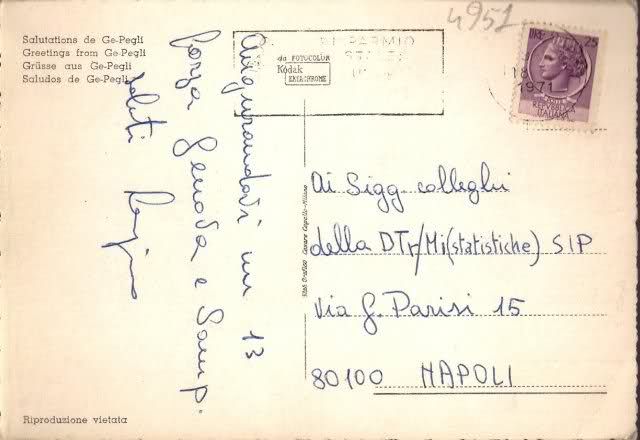 Salutations de Ge-Pegli
Greetings from Ge-Pegli
Grüsse aus Ge-Pegli
Saludos de Ge-Pegli
4951
da FOTOCOLOR
Kodak
EKTACHROME
RISPARMIO
18
1971
25
REPUBBLICA
ITALIANA
Augurandovi un 13
forza Genova e Samp.
saluti
Ai Sigg. colleghi
della DTr/Mi(statistiche) SIP
Via G. Parisi 15
80100 NAPOLI
Riproduzione vietata